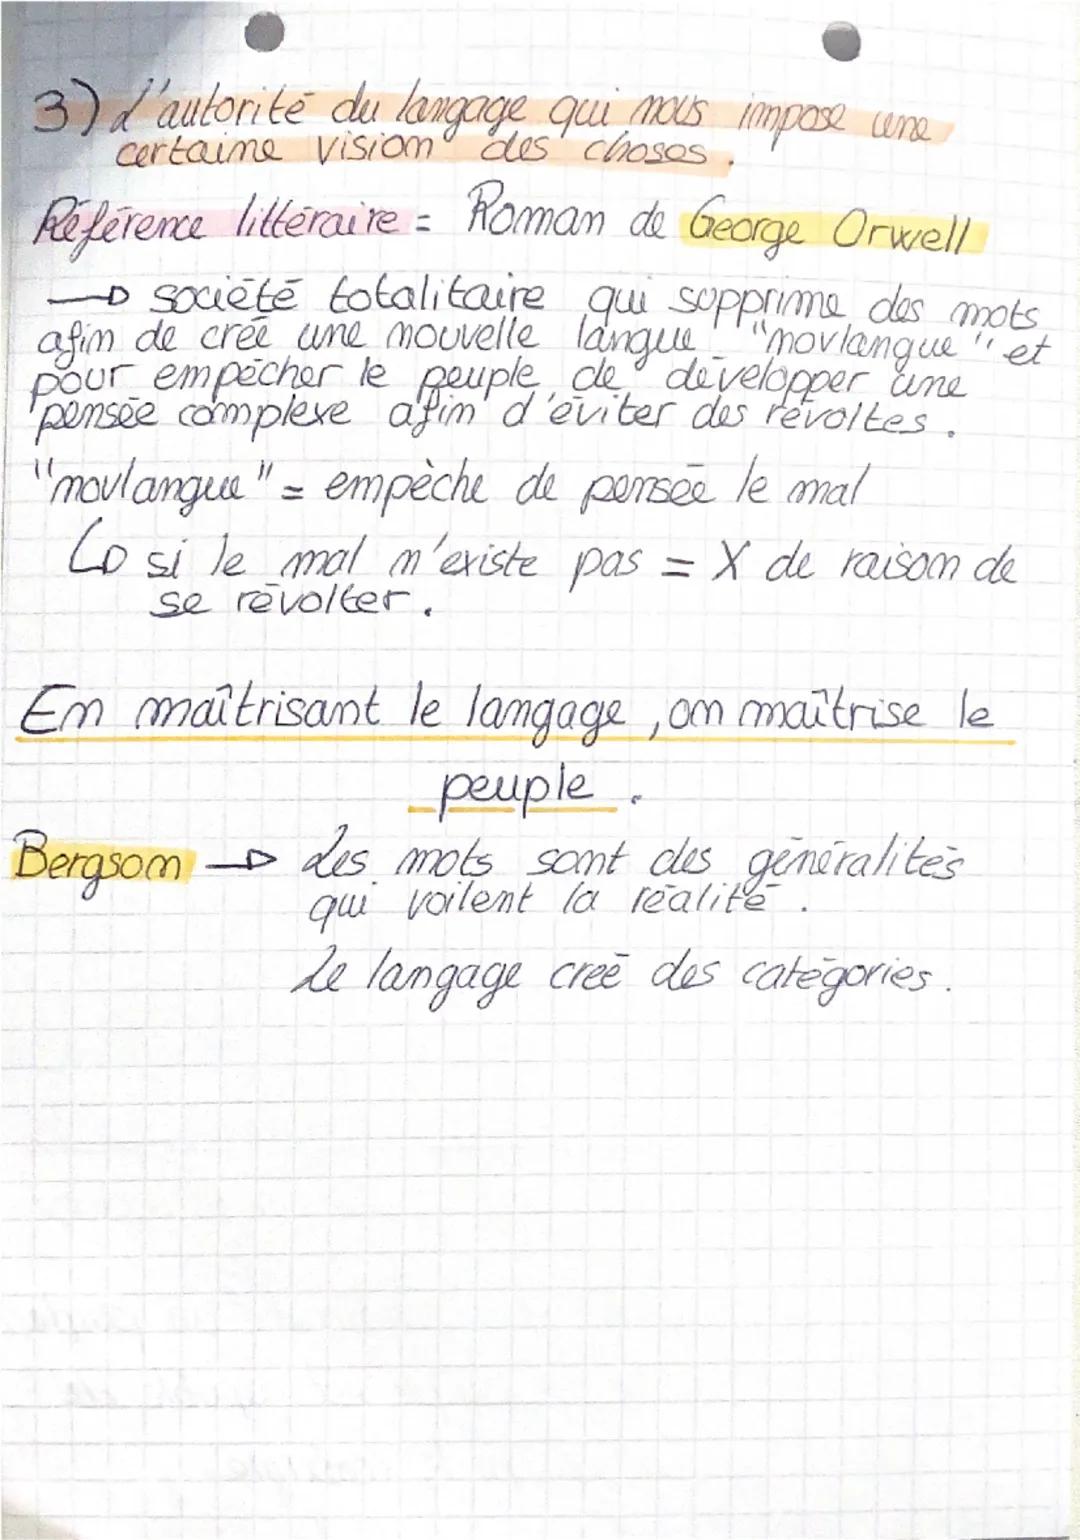 3) L'autorité du langage qui nous impose une
certaine vision des choses.
Référence littéraire = Roman de George Orwell
→ société totalitaire qui supprime des mots
afin de créé une nouvelle langue "novlangue" et
pour empêcher le peuple de développer une
pensée complexe afin d'éviter des révoltes.
"novlangue" = empèche de pensée le mal
↳ si le mal n'existe pas = X de raison de
se révolter.
En maîtrisant le langage, on maîtrise le
peuple.
Bergson → Les mots sont des généralités
qui voilent la réalité.
Le langage creé des catégories.